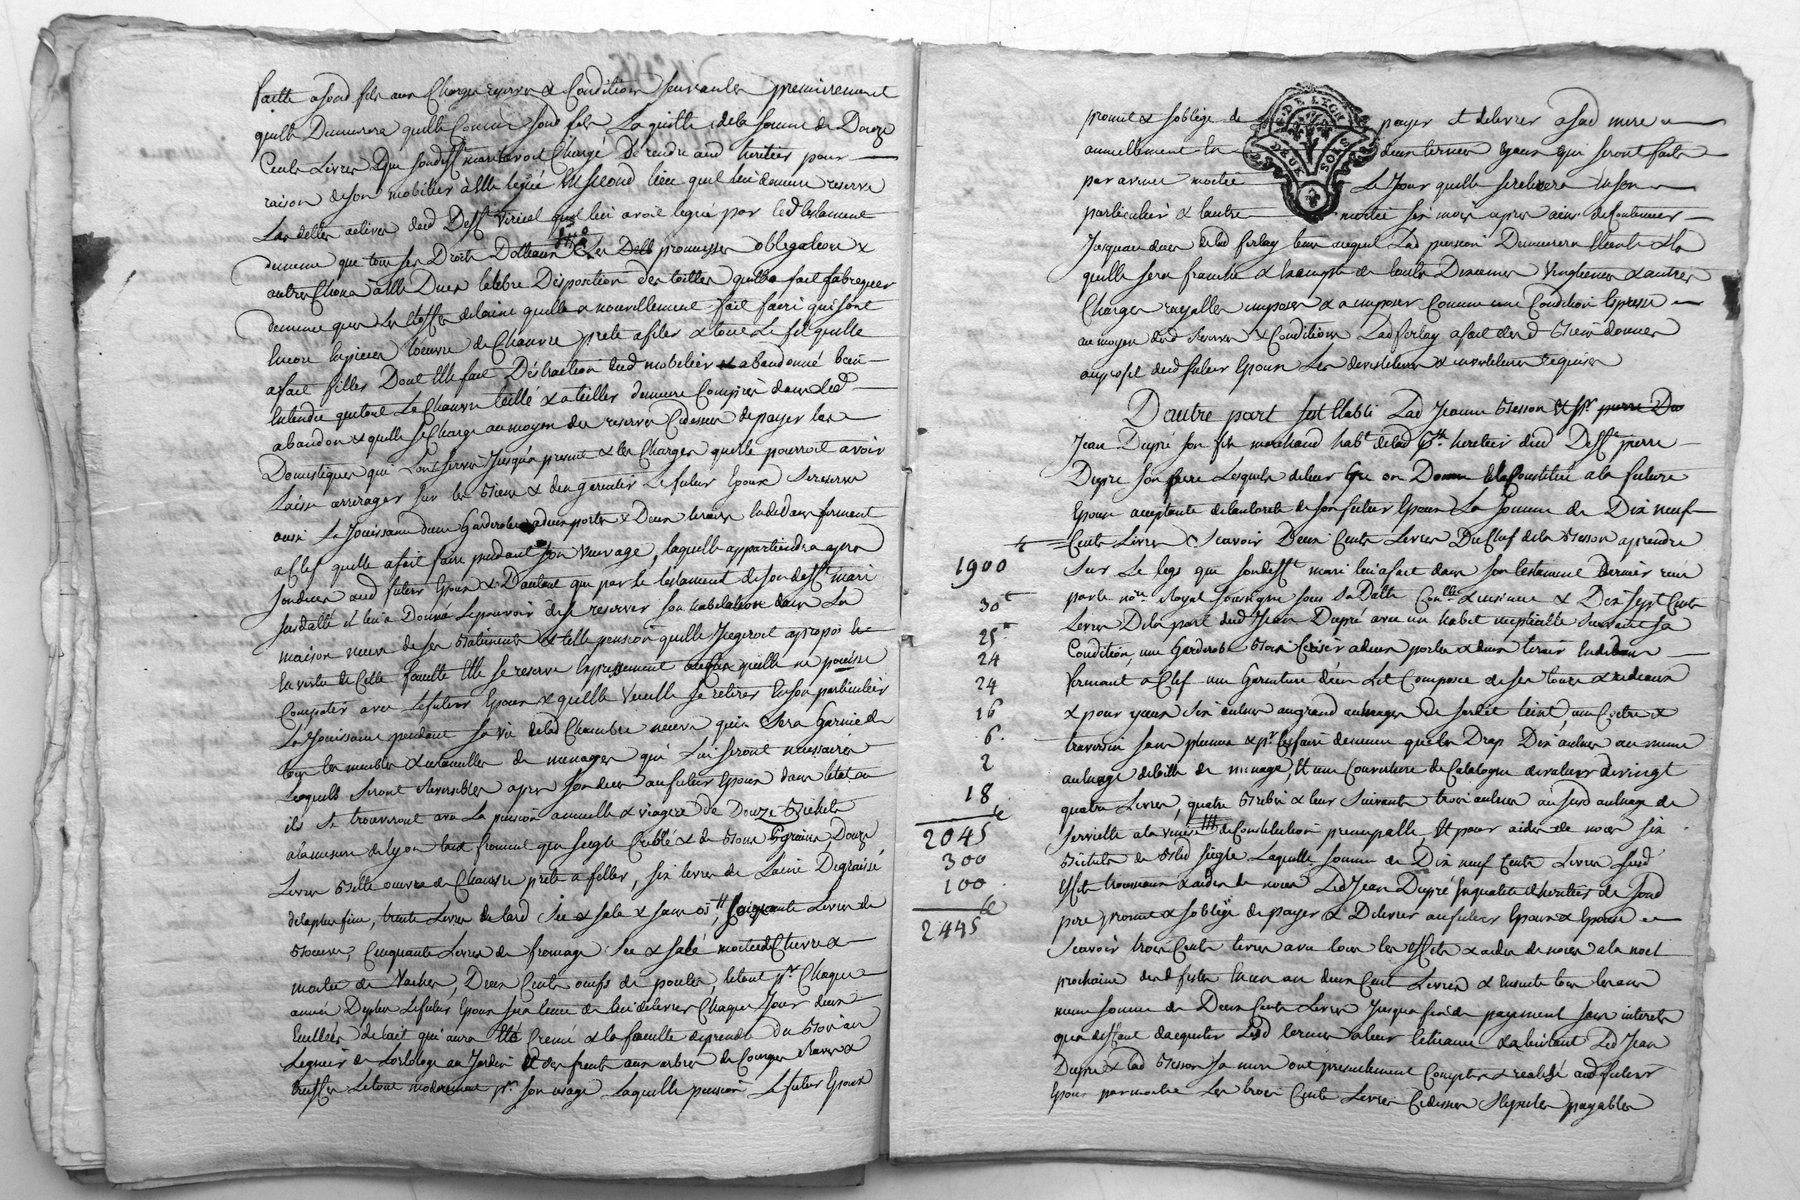 faitte asond fils aux Charges reserves & Conditions suivantes premierement
quelle Demeurera quelle Comme sond fils La quitte dela somme de Douze
Cents Livres que sondt mari lavoit Chargé de rendre aud heritier pour
raison deson mobilier à Elle legué En second lieu quil lui demeure reservé
Les dettes actives dud Defft qui lui avoit legué par led testament
demeure que tous ses Droits Dotteaux Les promesses obligations &
autres Choses à Elle Dues la libre Disposition des toilles quelle a fait fabriquer
demeure que Les Etoffes delaine quelle a nouvellement fait faire qui sont
Encore En pieces Lœuvre de Chanvre prete afiler & tout Le fil quelle
afait filler Dont Elle fait Distraction dud mobilier abandonné bien
Entendu que tout Le Chanvre teillé & a teiller demeure Compris dans led
abandon & quelle se Charge au moyen des reserves Cidessus depayer les
Domestiques qui Lont servi Jusqua present & les Charges quelle pourroit avoir
Laissé arrerager sur les Biens & den garantir Le futur Epoux se reserve
aussi La Jouissance dune Garderobe adeux portes & Deux tiroirs fermant
a Clef quelle afait faire pendant son veuvage, laquelle appartiendra apres
son deces aud futur Epoux & Dautant que par le testament deson defft mari
susdatté il lui a Donné Lepouvoir de se reserver son habitation dans La
maison neuve de ses Batiments & telle pension quelle Jugeroit apropos
En vertu de Cette faculté Elle se reserve Expressement quelle ne puisse
Compatir avec Lefutur Epoux & quelle Veuille se retirer En son particulier
La Jouissance pendant sa vie delad Chambre neuve qui sera Garnie de
tous les meubles & ustancilles de menages qui Lui seront necessaires
Lesquels seront Reversibles apres son deces au futur Epoux dans letat ou
ils se trouveront avec La pension annuelle & viagere de Douze Bichets
ala mesure de Lyon tant froment que seigle Criblé & de Bonne Graine, Douze
Livres Belle œuvre de Chanvre prete a filler, six livres de Laine Degraissé
dela plus fine, trente Livres de lard Sec & salé & sans os, Cinquante Livres de
Beurre, Cinquante Livres de fromage Sec & salé moitié de Chevre &
moitié de Vaches, Deux Cents œufs de poules, letout pr Chaque
année Deplus Le futur Epoux sera tenu de lui delivrer Chaque Jour deux
de lait qui aura Eté Cremé & la faculté de prendre du
Legumes de Lortolage au Jardin & des fruits aux arbres de Courges Raves &
truffes Letout moderement pr son usage Laquelle pension Le futur Epoux
G. DE LYON
DEUX SOLS
promet & soblige de payer et delivrer asad mere
annuellement En deux termes Egaux qui seront faits
par avance moitié Le Jour quelle se retirera En son
particulier & lautre moitié six mois apres ainsi de Continuer
Jusquau deces delad ferlay bien Lad pension Demeurera
quelle sera franche & Exempte de toutes Dixiemes Vingtiemes & autres
Charges royalles imposées & a imposer Comme une Condition Expresse
au moyen desd Reserves & Conditions Lad ferlay afait desd Biens donnés
au profit dud futur Epoux Les devestitures & investitures requises
Dautre part fut Etabli Lad Jeanne Besson & sr pierre Du
Jean Dupré son fils marchand habt delad heritier dud Defft pierre
Dupré son pere Lesquels de leur Gré on Donné & Constitué ala future
Epouse acceptante de lautorité de son futur Epoux La somme de Dix neuf
Cents Livres scavoir Deux Cents Livres Du Chef de la Besson aprendre
1900
Sur Le legs que sondefft mari lui a fait dans son testament dernier reçu
30
par le nore Royal soussigné sous sa Datte Conllé & insinué & Dix sept Cents
Livres Dela part dud Jean Dupré avec un habit nuptialle suivant sa
25
Condition, une Garderobe Bois Cerisier adeux portes & deux tiroirs
24
fermant a Clef une Garniture dun Lit Composé de ses tours & rideaux
24
& pour yceux six aulnes au grand aulnages de teint, une Coitre &
16
traversin sans plumes & pr les faire demeure quelle Drap Dix aulnes au meme
6
aulnage de toille de menage, Et une Couverture de Catalogne de valeur de vingt
2
quatre Livres, quatre Brebis & leur Suivante trois aulnes aususd aulnage de
18
serviette ala venise de Constitution principalle, Et pour aides de noces six
2045
Bichets de Bled seigle Laquelle somme de Dix neuf Cents Livres susd
300
effets trousseaux & aides de noces Led Jean Dupré En qualité d'heritier de sond
100
pere promet & soblige de payer & Delivrer aufuturs Epoux & Epouse
2445
Scavoir trois Cents livres avec tous les effets & aides de noces ala noel
prochaine desd fetes En un an deux Cent Livres & Ensuite tous les ans
meme somme de Deux Cents Livres Jusqua fin de payement sans interets
qua deffaut dacquiter Lesd termes a leur Echeance & a linstant Led Jean
Dupré & lad Besson sa mere ont presentement Compté & realisé aud futur
Epoux par moitié Les trois Cents Livres Cidessus Stipulés payables